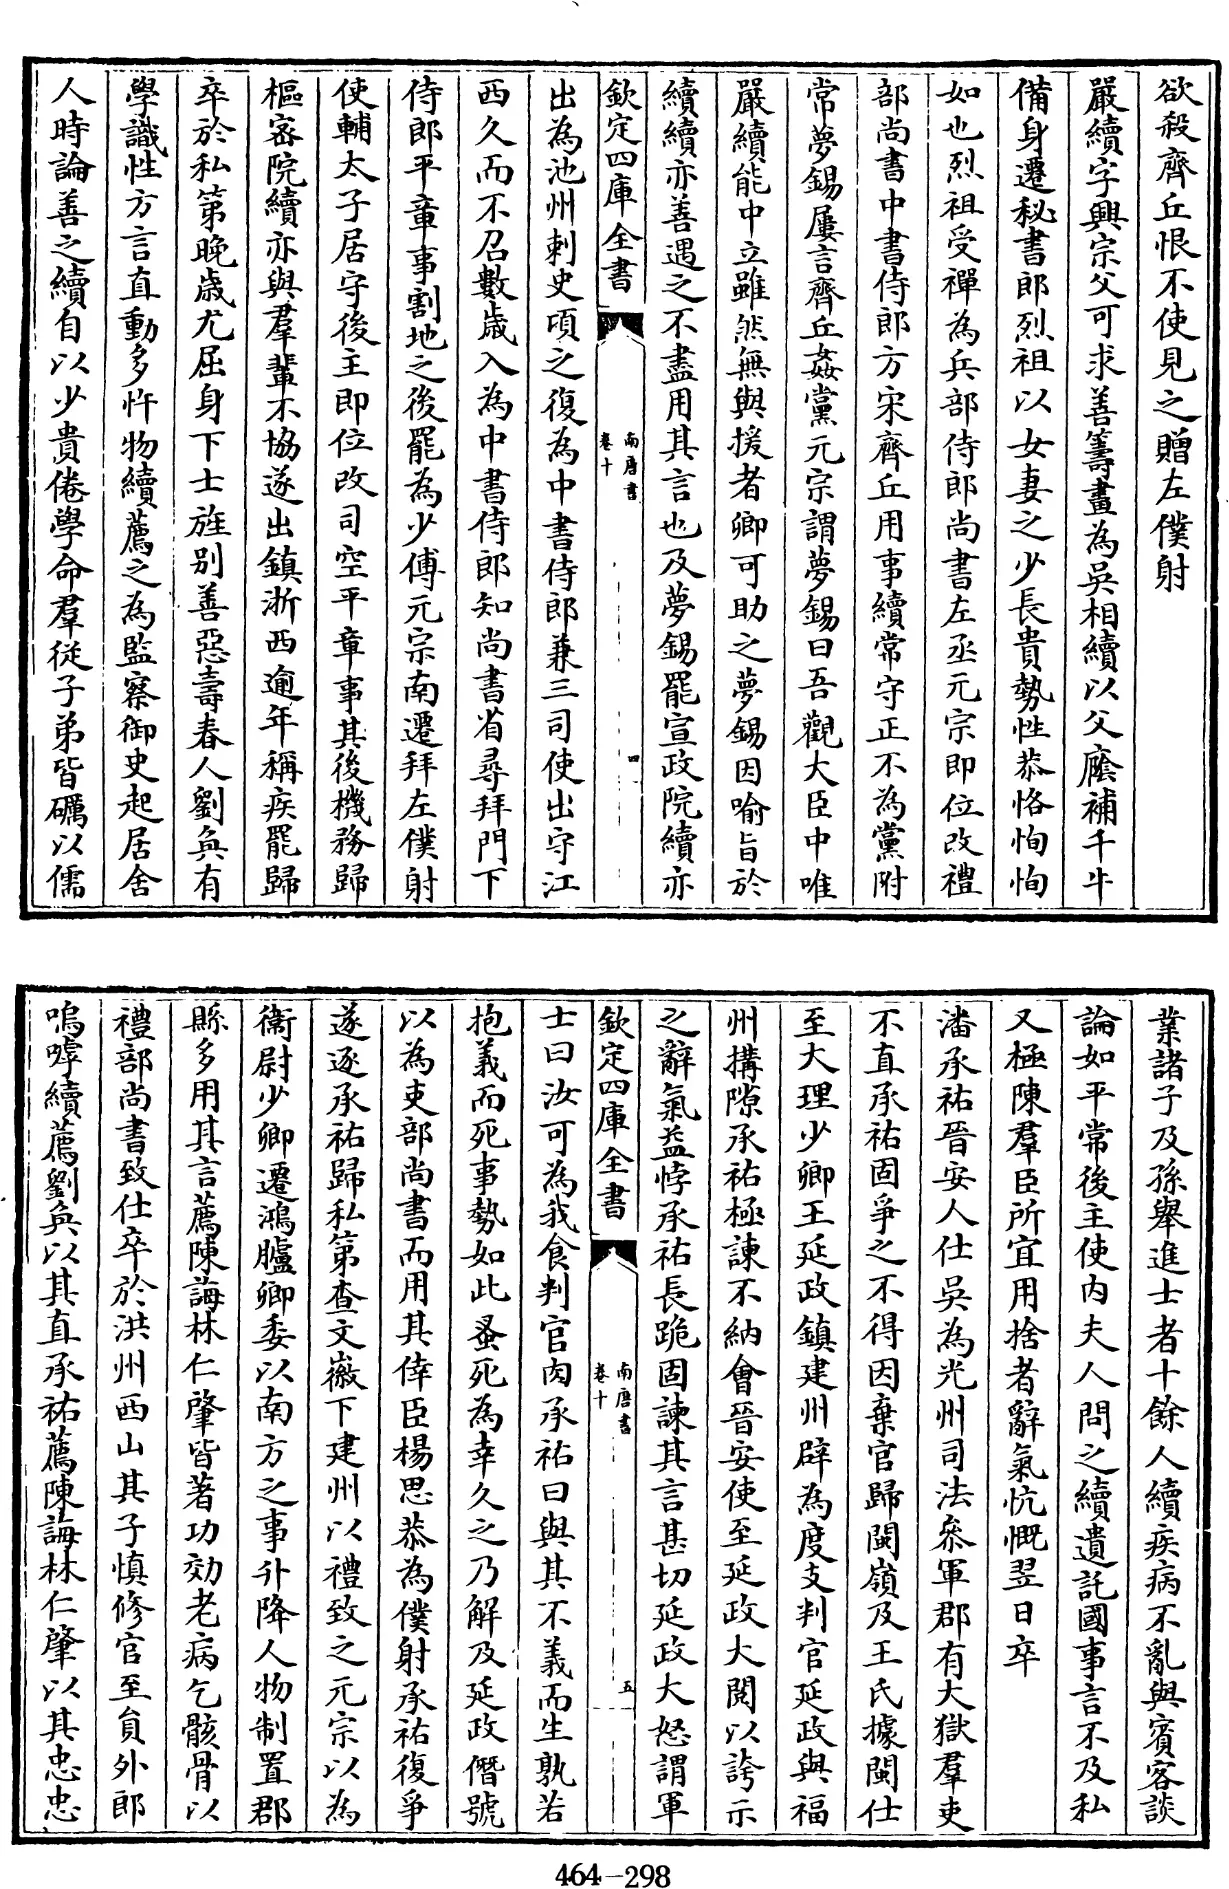 欲殺齊丘恨不使見之贈左僕射
嚴續字興宗父可求善籌畫為吳相續以父廕補千牛
備身遷秘書郎烈祖以女妻之少長貴勢性恭恪恂恂
如也烈祖受禪為兵部侍郎尚書左丞元宗即位改禮
部尚書中書侍郎方宋齊丘用事續常守正不為黨附
常夢錫屢言齊丘姦黨元宗謂夢錫曰吾觀大臣中唯
嚴續能中立雖然無與援者卿可助之夢錫因喻旨於
續續亦善遇之不盡用其言也及夢錫罷宣政院續亦
欽定四庫全書
南唐書
卷十
四
出為池州刺史頃之復為中書侍郎兼三司使出守江
西久而不召數歲入為中書侍郎知尚書省尋拜門下
侍郎平章事割地之後罷為少傅元宗南遷拜左僕射
使輔太子居守後主即位改司空平章事其後機務歸
樞密院續亦與羣輩不協遂出鎮浙西逾年稱疾罷歸
卒於私第晚歲尤屈身下士旌别善惡壽春人劉奐有
學識性方言直動多忤物續薦之為監察御史起居舍
人時論善之續自以少貴倦學命羣從子弟皆礪以儒
業諸子及孫舉進士者十餘人續疾病不亂與賓客談
論如平常後主使内夫人問之續遺託國事言不及私
又極陳羣臣所宜用捨者辭氣忼慨翌日卒
潘承祐晉安人仕吳為光州司法叅軍郡有大獄羣吏
不直承祐固爭之不得因棄官歸閩嶺及王氏據閩仕
至大理少卿王延政鎮建州辟為度支判官延政與福
州搆隙承祐極諫不納會晉安使至延政大閱以誇示
之辭氣益悖承祐長跪固諫其言甚切延政大怒謂軍
欽定四庫全書
南唐書
卷十
五
士曰汝可為我食判官肉承祐曰與其不義而生孰若
抱義而死事勢如此蚤死為幸久之乃解及延政僭號
以為吏部尚書而用其倖臣楊思恭為僕射承祐復爭
遂逐承祐歸私第查文徽下建州以禮致之元宗以為
衛尉少卿遷鴻臚卿委以南方之事升降人物制置郡
縣多用其言薦陳誨林仁肇皆著功効老病乞骸骨以
禮部尚書致仕卒於洪州西山其子慎修官至員外郎
嗚嘑續薦劉奐以其直承祐薦陳誨林仁肇以其忠忠
464-298